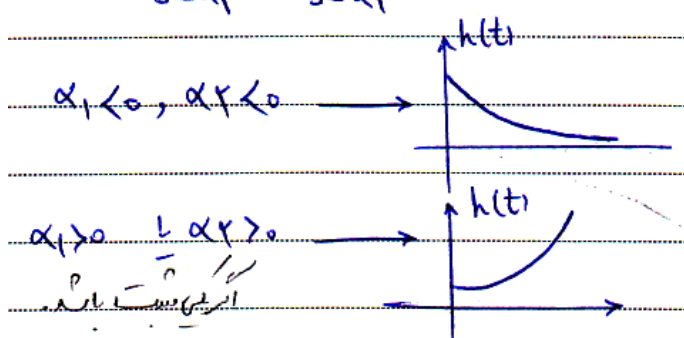 h(t)
α₁<0 , α۲<0 ⟶
h(t)
α₁>0 یا α۲>0 ⟶
اگر یکی مثبت باشد.